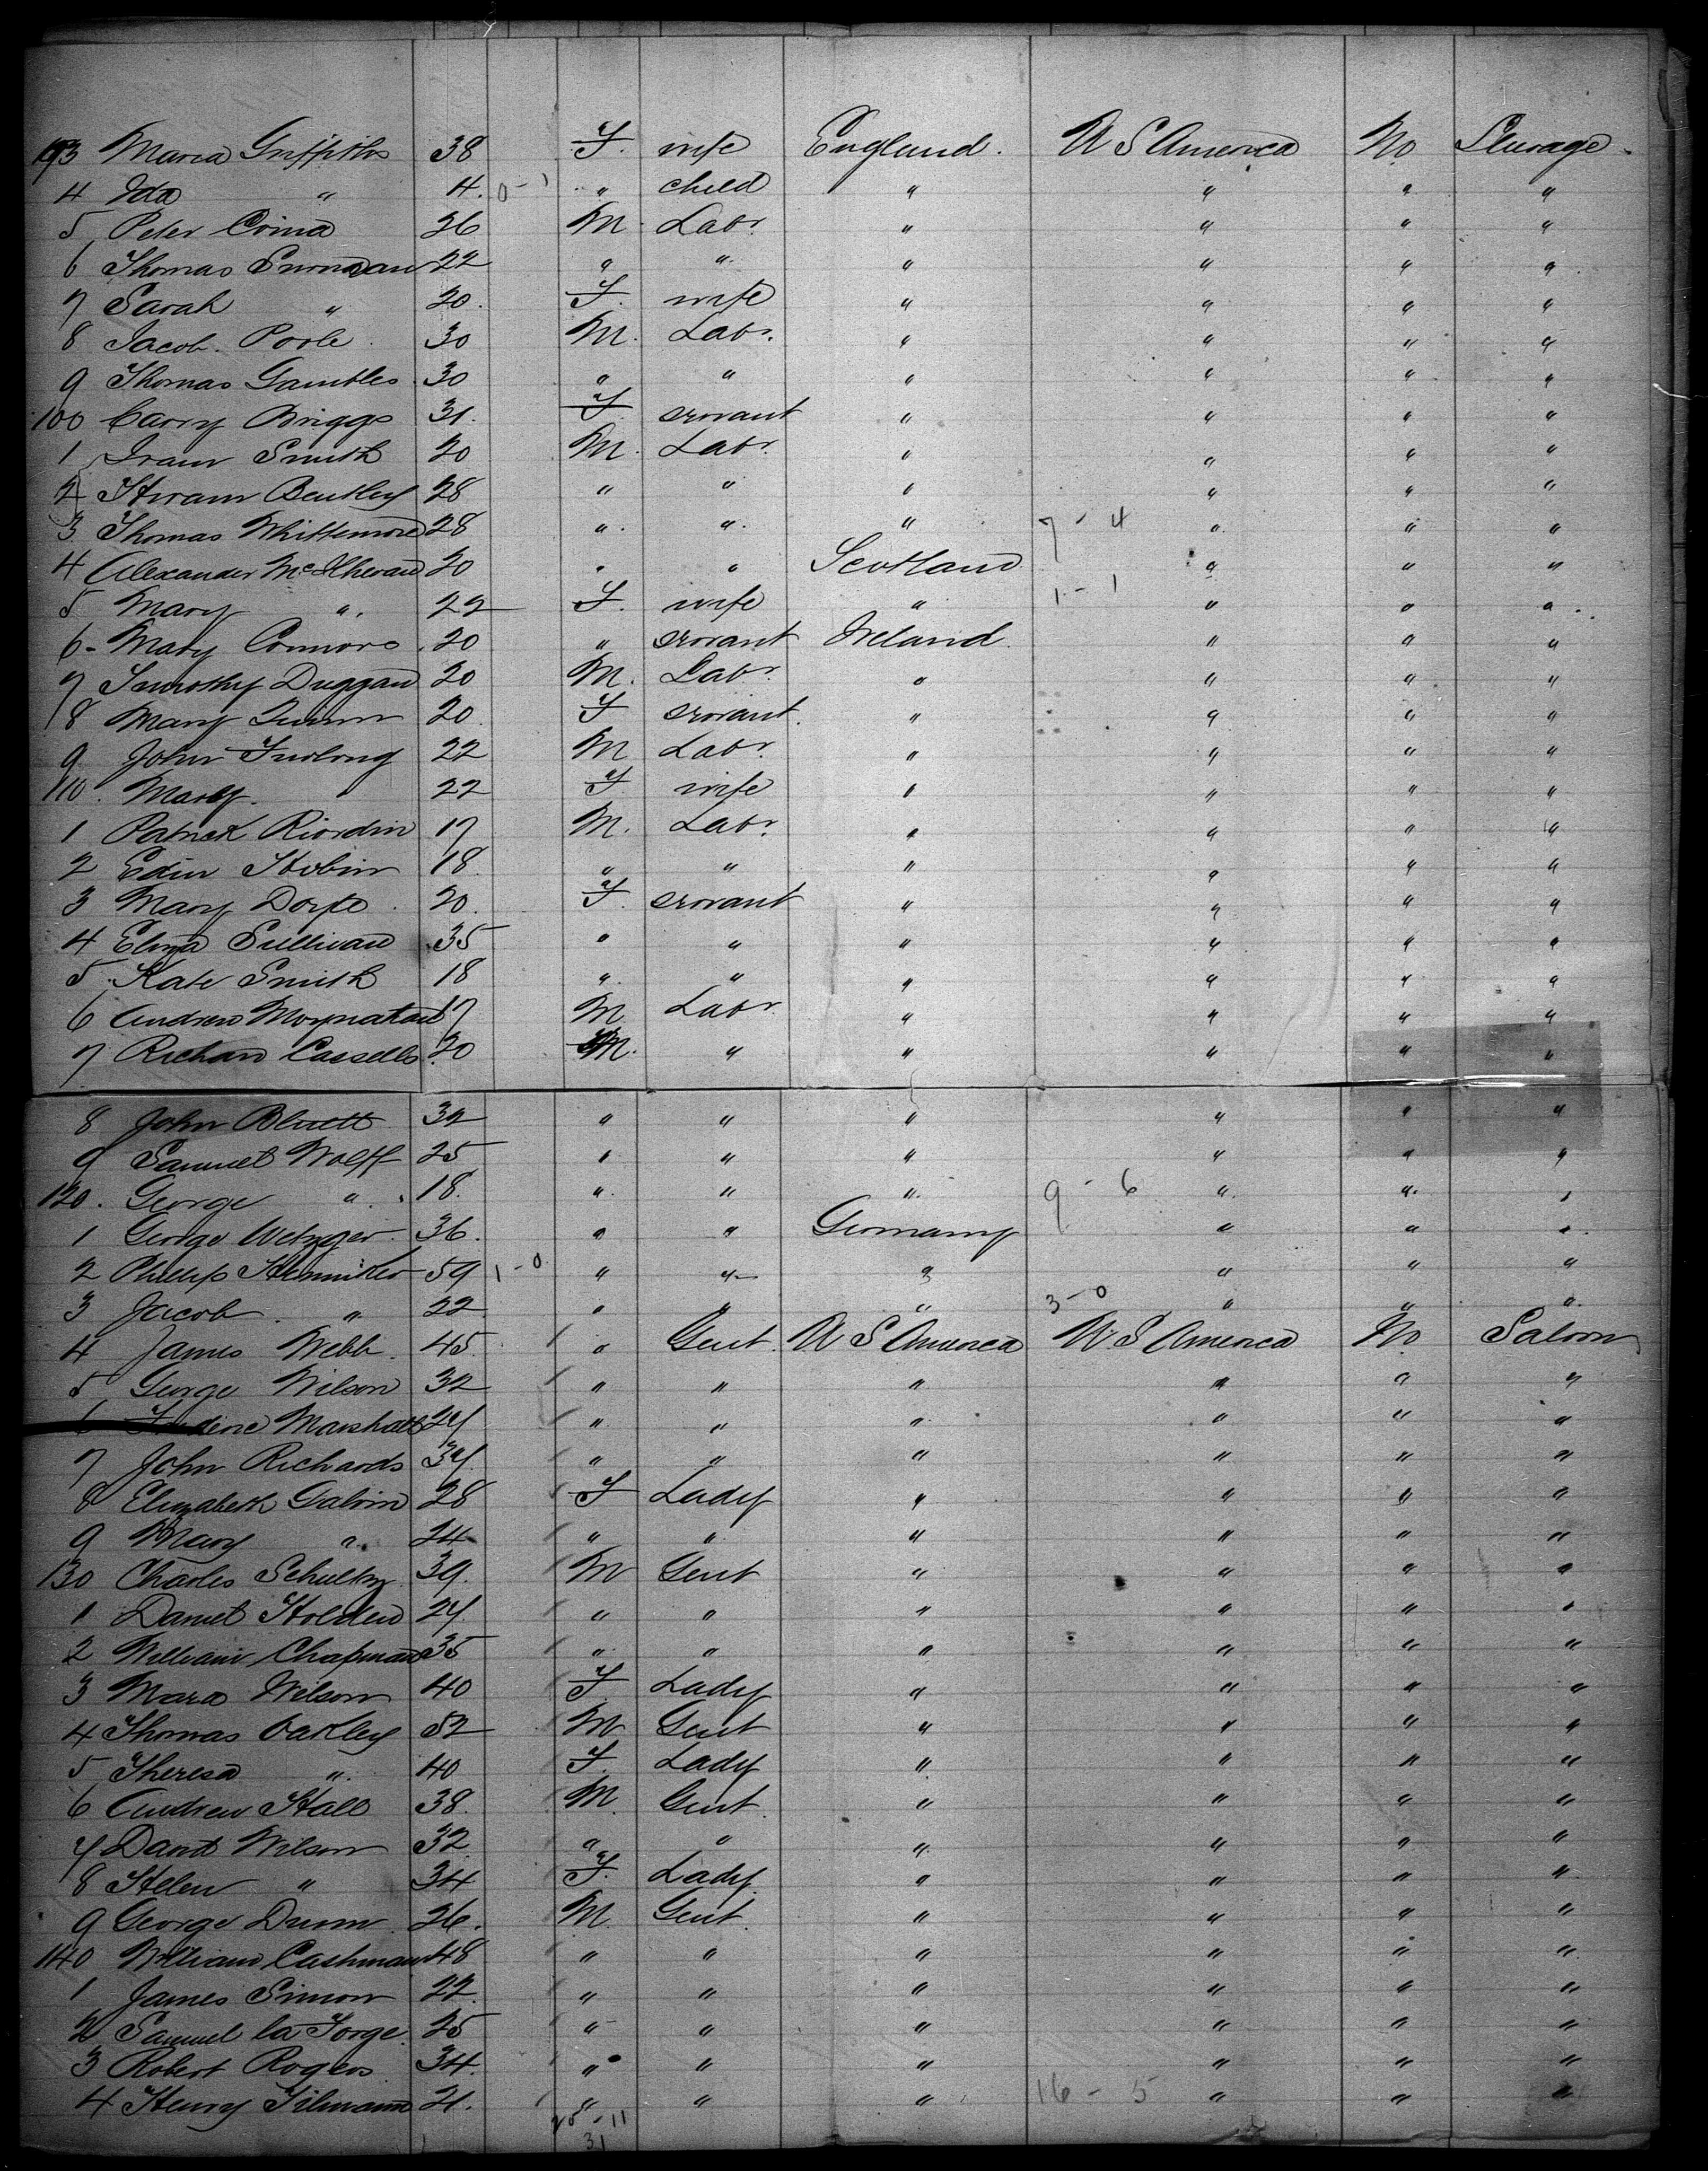 193 Maria Griffiths 38 F. wife England. U S America No Steerage
4 Ida " 4. 0-1 " child " " " "
5 Peter 26 M. Labr. " " " "
6 Thomas 22 " " " " " "
7 Sarah " 20. F. wife " " " "
8 Jacob Poole 30 M. Labr. " " " "
9 Thomas Gambles 30 " " " " " "
100 Carry Briggs 31. F. servant " " " "
1 Smith 20 M. Labr. " " " "
2 Hiram Bentley 28 " " " " " "
3 Thomas Whittemore 28 " " " 7-4 " " "
4 Alexander 20 " " Scotland " " "
5 Mary " 22 F. wife " 1-1 " " "
6 Mary Connors 20 " servant Ireland " " "
7 Timothy Duggan 20 M. Labr. " " " "
8 Mary Quinn 20 F servant " " " "
9 John Furlong 22 M Labr. " " " "
110. Mary " 22 F wife " " " "
1 Patrick Riordin 17 M. Labr. " " " "
2 Edin Hobin 18 " " " " " "
3 Mary Doyle 20 F. servant " " " "
4 Eliza Sullivan 35 " " " " " "
5 Kate Smith 18 " " " " " "
6 Andrew 17 M Labr " " " "
7 Richard Cassells 20 M. " " " " "
8 John Bluett 32 " " " " " "
9 Samuel Wolff 25 " " " " " "
120. George " 18. " " " 9-6 " " "
1 George Metzger 36. " " Germany " " "
2 Phillip 59 1-0 " " " " " "
3 Jacob " 22 " " " 3-0 " " "
4 James Webb 45 " Gent. U S America U. S America No Saloon
5 George Wilson 32 " " " " " "
6 Marshall 24 " " " " " "
7 John Richards 34 " " " " " "
8 Elizabeth Galvin 28 F Lady " " " "
9 Mary " 24 " " " " " "
130 Charles Schultz 39. M Gent " " " "
1 Daniel Holden 24. " " " " " "
2 William Chapman 35 " " " " " "
3 Mara Wilson 40 F. Lady " " " "
4 Thomas Oakley 52 M Gent " " " "
5 Theresa " 40 F. Lady " " " "
6 Andrew Hall 38. M. Gent. " " " "
7 David Wilson 32 " " " " " "
8 Helen " 34 F. Lady " " " "
9 George Dunn 26. M. Gent. " " " "
140 William Cashman 48 " " " " " "
1 James Simon 22. " " " " " "
2 Samuel la Forge 25 " " " " " "
3 Robert Rogers 34. " " " " " "
4 Henry Tilmann 21. " " " 16-5 " " "
20-11
31